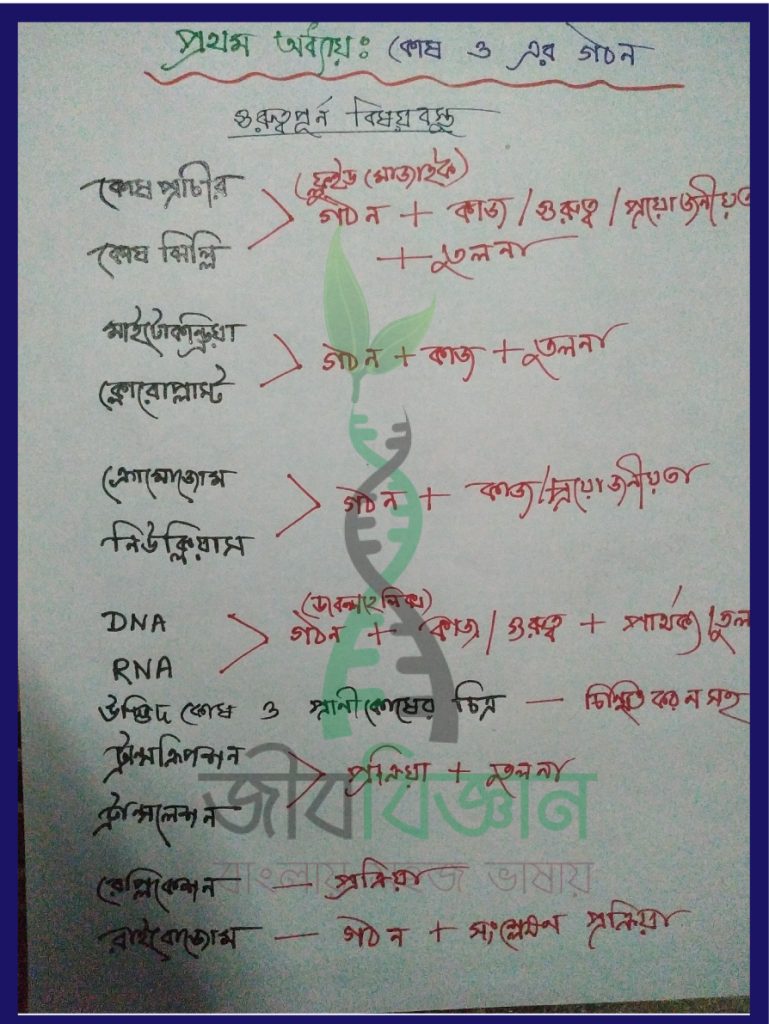 প্রথম অধ্যায়ঃ কোষ ও এর গঠন
গুরুত্বপূর্ন বিষয়বস্তু
কোষপ্রাচীর
(ফ্লুইড মোজাইক)
গঠন + কাজ / গুরুত্ব / প্রয়োজনীয়ত
কোষ ঝিল্লি
+ তুলনা
মাইটোকন্ড্রিয়া
গঠন + কাজ + তুলনা
ক্লোরোপ্লাস্ট
ক্রোমোজোম
গঠন + কাজ/প্রয়োজনীয়তা
নিউক্লিয়াস
(ডাবলহেলিক্স)
DNA
গঠন + কাজ / গুরুত্ব + পার্থক্য/তুল
RNA
উদ্ভিদ কোষ ও প্রানীকোষের চিত্র — চিহ্নিতকরনসহ
ট্রান্সক্রিপশন
প্রক্রিয়া + তুলনা
ট্রান্সলেশন
জীববিজ্ঞান
বাংলায় সহজ ভাষায়
রেপ্লিকেশন — প্রক্রিয়া
রাইবোজোম — গঠন + সংশ্লেষণ প্রক্রিয়া